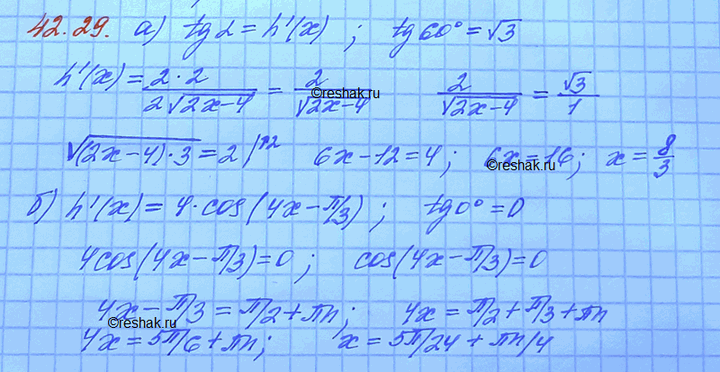 42.29. а) tg α = h'(x) ; tg 60° = √3
h'(x) = 2·2/2√2x-4 = 2/√2x-4 2/√2x-4 = √3/1
©reshak.ru
√(2x-4)·3 = 2 |↑2 6x-12=4; 6x=16; x = 8/3
©reshak.ru
б) h'(x) = 4·cos(4x-π/3) ; tg 0° = 0
4cos(4x-π/3)=0 ; cos(4x-π/3)=0
4x-π/3 = π/2+πn; 4x = π/2+π/3+πn
©reshak.ru
4x = 5π/6+πn; x = 5π/24+πn/4